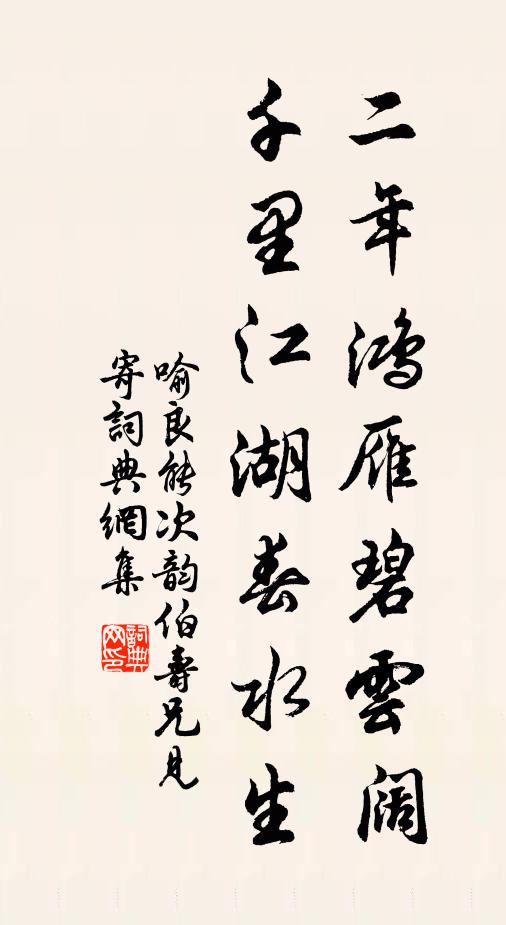 二年鸿雁碧雲阔
千里江湖春水生
喻良能次韵伯壽兄見
寄詞典網集
詞典网印